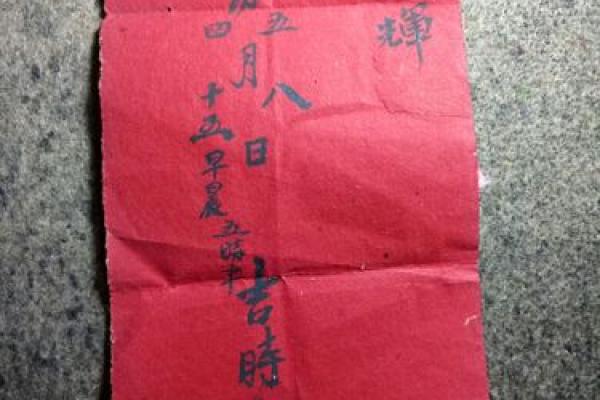 輝
五八
月日吉時
四十五早晨五時半